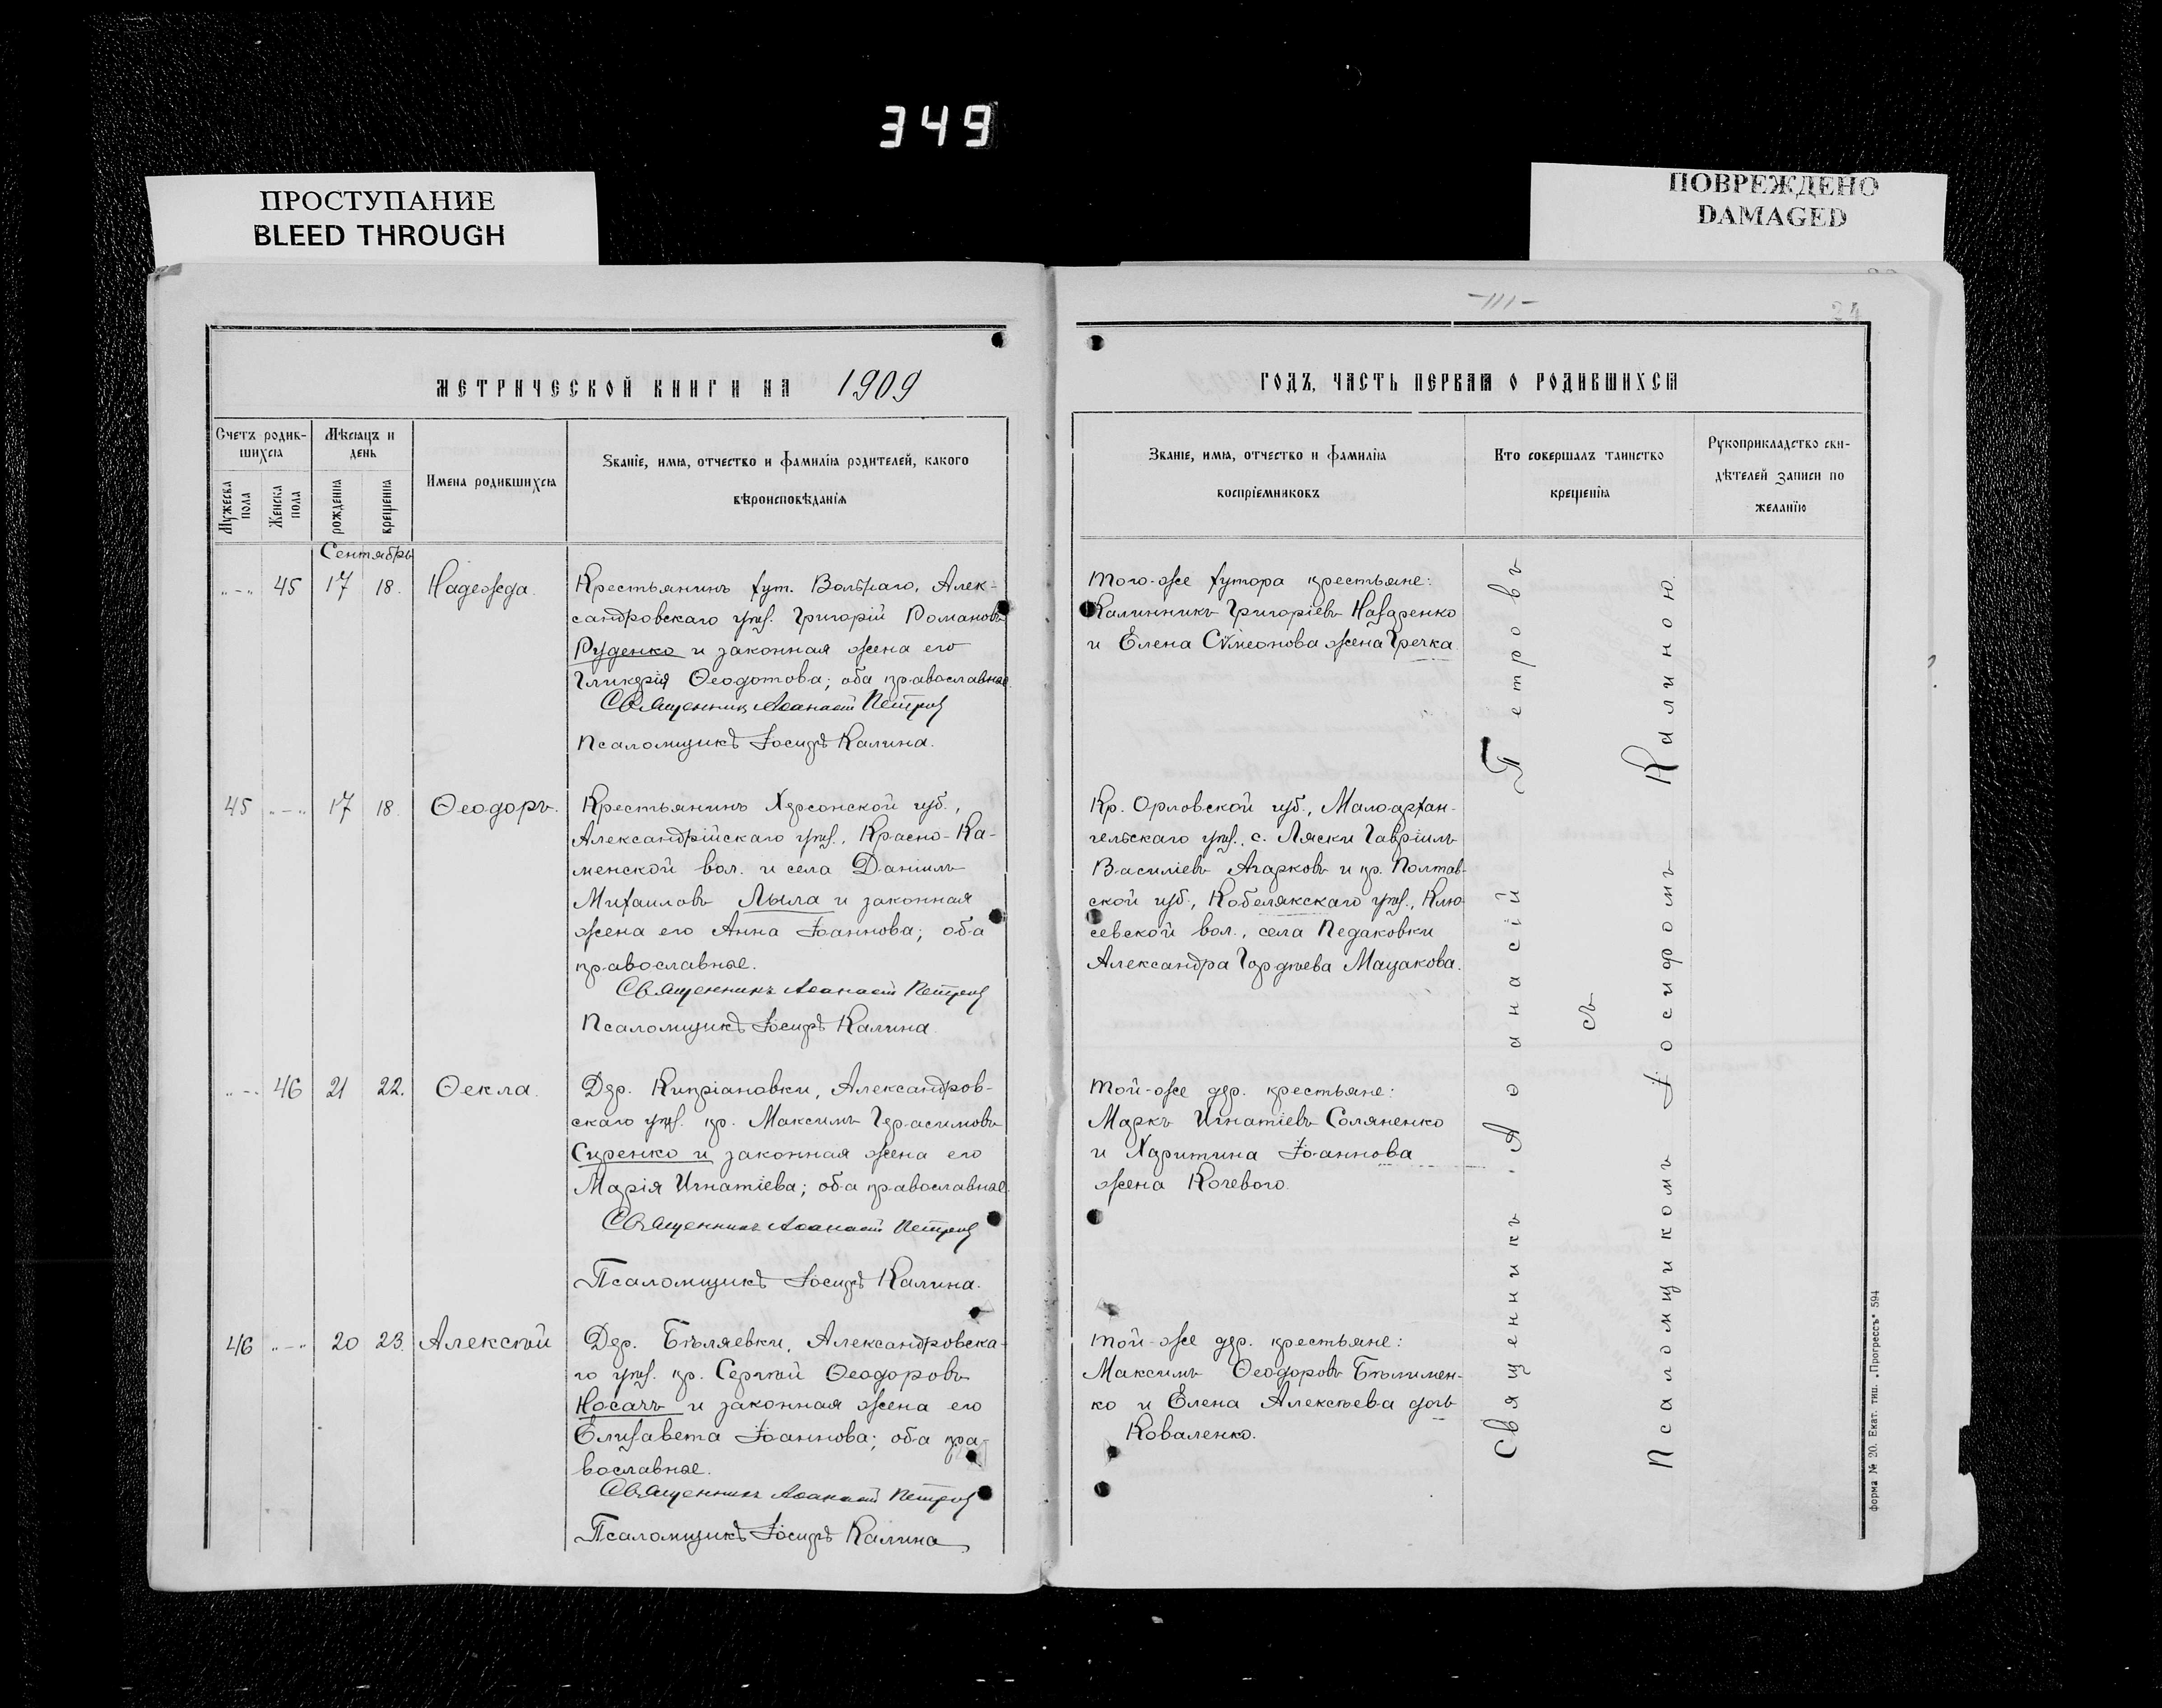 349
ПРОСТУПАНИЕ
BLEED THROUGH
ПОВРЕЖДЕНО
DAMAGED
МЕТРИЧЕСКОЙ КНИГИ НА 1909
Счетъ родив-
шихся
Мужеска пола
Женска пола
Мѣсяцъ и
день
рожденія
крещенія
Имена родившихся
Званіе, имя, отчество и фамилія родителей, какого
вѣроисповѣданія
Сентябрь
"-" 45 17 18. Надежда.
Крестьянинъ хут. Вольнаго, Алек-
сандровскаго уѣз. Григорій Романовъ
Руденко и законная жена его
Гликерія Ѳеодотова; оба православные.
Священникъ Аѳанасій Петровъ
Псаломщикъ Іосифъ Калина.
45 "-" 17 18. Ѳеодоръ.
Крестьянинъ Херсонской губ.,
Александрійскаго уѣз., Красно-Ка-
менской вол. и села Даніилъ
Михаиловъ Лыла и законная
жена его Анна Іоаннова; оба
православные.
Священникъ Аѳанасій Петровъ
Псаломщикъ Іосифъ Калина
"-" 46 21 22. Ѳекла.
Дер. Кипріановки, Александров-
скаго уѣз. кр. Максимъ Герасимовъ
Сиренко и законная жена его
Марія Игнатіева; оба православные.
Священникъ Аѳанасій Петровъ
Псаломщикъ Іосифъ Калина.
46 "-" 20 23. Алексѣй
Дер. Бѣляевки, Александровска-
го уѣз. кр. Сергѣй Ѳеодоровъ
Носачъ и законная жена его
Елизавета Іоаннова; оба пра-
вославные.
Священникъ Аѳанасій Петровъ
Псаломщикъ Іосифъ Калина
-111-
24
ГОДЪ, ЧАСТЬ ПЕРВАЯ О РОДИВШИХСЯ
Званіе, имя, отчество и фамилія
воспріемниковъ
Кто совершалъ таинство
крещенія
Рукоприкладство сви-
дѣтелей записи по
желанію
того-же хутора крестьяне:
Калинникъ Григоріевъ Назаренко
и Елена Сѵмеонова жена Гречка.
Кр. Орловской губ., Малоархан-
гельскаго уѣз., с. Ляски Гавріилъ
Василіевъ Агарковъ и кр. Полтав-
ской губ., Кобелякскаго уѣз., Клю-
севской вол., села Педаковки
Александра Гордѣева Мацакова.
той-же дер. крестьяне:
Маркъ Игнатіевъ Соляненко
и Харитина Іоаннова
жена Кочевого.
той-же дер. крестьяне:
Максимъ Ѳеодоровъ Бѣлимен-
ко и Елена Алексѣева дочь
Коваленко.
Священникъ Аѳанасій Петровъ
съ
Псаломщикомъ Іосифомъ Калиною.
форма № 20. Екат. тип. „Прогрессъ" 594